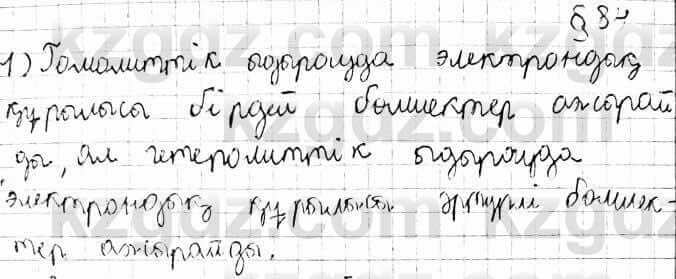 § 8.4
1) Гомолиттік ыдырауда электрондық
құрылысы бірдей бөлшектер ажырай
ды, ал гетеролиттік ыдырауда
электрондық құрылысы әртүрлі бөлшек-
тер ажырайды.